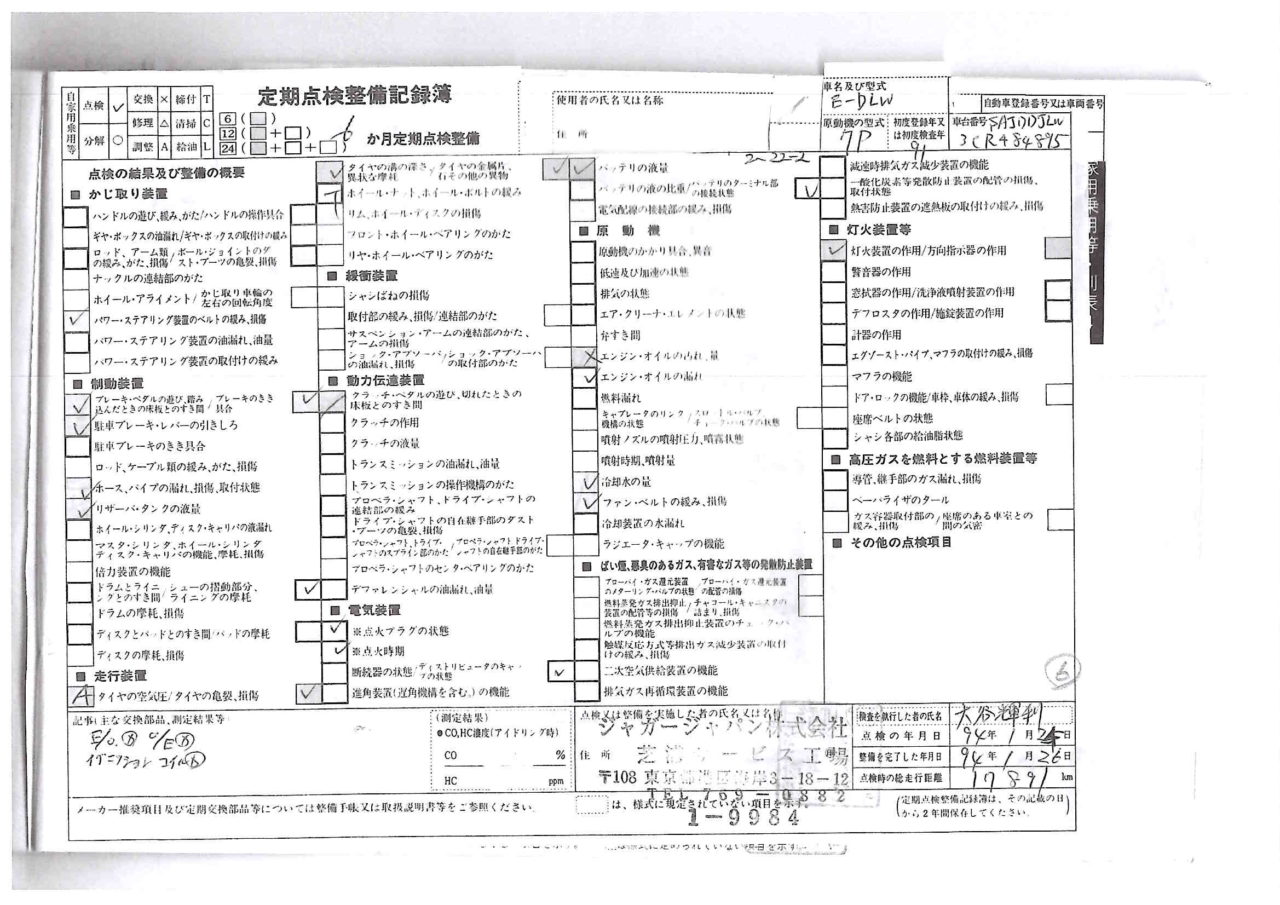 自家用乗用等
点検 ✓ 交換 × 締付 T
修理 △ 清掃 C
分解 ○ 調整 A 給油 L
定期点検整備記録簿
6 ( )
12 ( + )
24 ( + + ) 6 か月定期点検整備
使用者の氏名又は名称
住 所
車名及び型式
E-DLW
原動機の型式
7P
初度登録年又は初度検査年
91
自動車登録番号又は車両番号
車台番号 SAJDDJLW
3CR484895
2-22-2
点検の結果及び整備の概要
■ かじ取り装置
ハンドルの遊び、緩み、がた/ハンドルの操作具合
ギヤ・ボックスの油漏れ/ギヤ・ボックスの取付けの緩み
ロッド、アーム類の緩み、がた、損傷/ボール・ジョイントのダスト・ブーツの亀裂、損傷
ナックルの連結部のがた
ホイール・アライメント/かじ取り車輪の左右の回転角度
✓ パワー・ステアリング装置のベルトの緩み、損傷
パワー・ステアリング装置の油漏れ、油量
パワー・ステアリング装置の取付けの緩み
■ 制動装置
✓ ブレーキ・ペダルの遊び、踏み込んだときの床板とのすき間/ブレーキのきき具合 ✓
✓ 駐車ブレーキ・レバーの引きしろ
駐車ブレーキのきき具合
ロッド、ケーブル類の緩み、がた、損傷
✓ ホース、パイプの漏れ、損傷、取付状態
✓ リザーバ・タンクの液量
ホイール・シリンダ、ディスク・キャリパの液漏れ
マスタ・シリンダ、ホイール・シリンダ
ディスク・キャリパの機能、摩耗、損傷
倍力装置の機能
ドラムとライニングとのすき間/シューの摺動部分、ライニングの摩耗 ✓
ドラムの摩耗、損傷
ディスクとパッドとのすき間/パッドの摩耗
ディスクの摩耗、損傷
■ 走行装置
A タイヤの空気圧/タイヤの亀裂、損傷 ✓
✓ タイヤの溝の深さ、異状な摩耗/タイヤの金属片、石その他の異物 ✓
T ホイール・ナット、ホイール・ボルトの緩み
リム、ホイール・ディスクの損傷
フロント・ホイール・ベアリングのがた
リヤ・ホイール・ベアリングのがた
■ 緩衝装置
シャシばねの損傷
取付部の緩み、損傷/連結部のがた
サスペンション・アームの連結部のがた、
アームの損傷
ショック・アブソーバの油漏れ、損傷/ショック・アブソーバの取付部のがた
■ 動力伝達装置
✓ クラッチ・ペダルの遊び、切れたときの
床板とのすき間
クラッチの作用
クラッチの液量
トランスミッションの油漏れ、油量
トランスミッションの操作機構のがた
プロペラ・シャフト、ドライブ・シャフトの
連結部の緩み
ドライブ・シャフトの自在継手部のダスト
・ブーツの亀裂、損傷
プロペラ・シャフト、ドライブ・シャフトのスプライン部のがた/プロペラ・シャフト ドライブ・シャフトの自在継手部のがた
プロペラ・シャフトのセンタ・ベアリングのがた
デファレンシャルの油漏れ、油量
■ 電気装置
✓ ※点火プラグの状態
✓ ※点火時期
断続器の状態/ディストリビュータのキャップの状態 ✓
進角装置(遅角機構を含む。)の機能
✓ バッテリの液量
バッテリの液の比重/バッテリのターミナル部の接続状態 ✓
電気配線の接続部の緩み、損傷
■ 原 動 機
原動機のかかり具合、異音
低速及び加速の状態
排気の状態
エア・クリーナ・エレメントの状態
弁すき間
× エンジン・オイルの汚れ、量
✓ エンジン・オイルの漏れ
燃料漏れ
キャブレータのリンク機構の状態/スロットル・バルブ チョーク・バルブの状態
噴射ノズルの噴射圧力、噴霧状態
噴射時期、噴射量
✓ 冷却水の量
✓ ファン・ベルトの緩み、損傷
冷却装置の水漏れ
ラジエータ・キャップの機能
■ ばい煙、悪臭のあるガス、有害なガス等の発散防止装置
ブローバイ・ガス還元装置のメターリング・バルブの状態/ブローバイ・ガス還元装置の配管の損傷
燃料蒸発ガス排出抑止装置の配管等の損傷/チャコール・キャニスタの詰まり、損傷
燃料蒸発ガス排出抑止装置のチェック・バルブの機能
触媒反応方式等排出ガス減少装置の取付けの緩み、損傷
二次空気供給装置の機能
排気ガス再循環装置の機能
減速時排気ガス減少装置の機能
一酸化炭素等発散防止装置の配管の損傷、
取付状態
熱害防止装置の遮熱板の取付けの緩み、損傷
■ 灯火装置等
✓ 灯火装置の作用/方向指示器の作用
警音器の作用
窓拭器の作用/洗浄液噴射装置の作用
デフロスタの作用/施錠装置の作用
計器の作用
エグゾースト・パイプ、マフラの取付けの緩み、損傷
マフラの機能
ドア・ロックの機能/車枠、車体の緩み、損傷
座席ベルトの状態
シャシ各部の給油脂状態
■ 高圧ガスを燃料とする燃料装置等
導管、継手部のガス漏れ、損傷
ベーパライザのタール
ガス容器取付部の緩み、損傷/座席のある車室との間の気密
■ その他の点検項目
⑥
記事(主な交換部品、測定結果等)
E/O.Ⓡ O/EⓇ
イグニション コイルⓇ
(測定結果)
●CO,HC濃度(アイドリング時)
CO %
HC ppm
点検又は整備を実施した者の氏名又は名称
ジャガージャパン株式会社
住 所 芝浦サービス工場
〒108 東京都港区海岸3-18-12
TEL 769-0882
1-9984
検査を執行した者の氏名 大谷輝利
点検の年月日 94年 1月 25日
整備を完了した年月日 94年 1月 26日
点検時の総走行距離 17891 km
メーカー推奨項目及び定期交換部品等については整備手帳又は取扱説明書等をご参照ください。
は、様式に規定されていない項目を示す。
(定期点検整備記録簿は、その記載の日から2年間保存してください。)